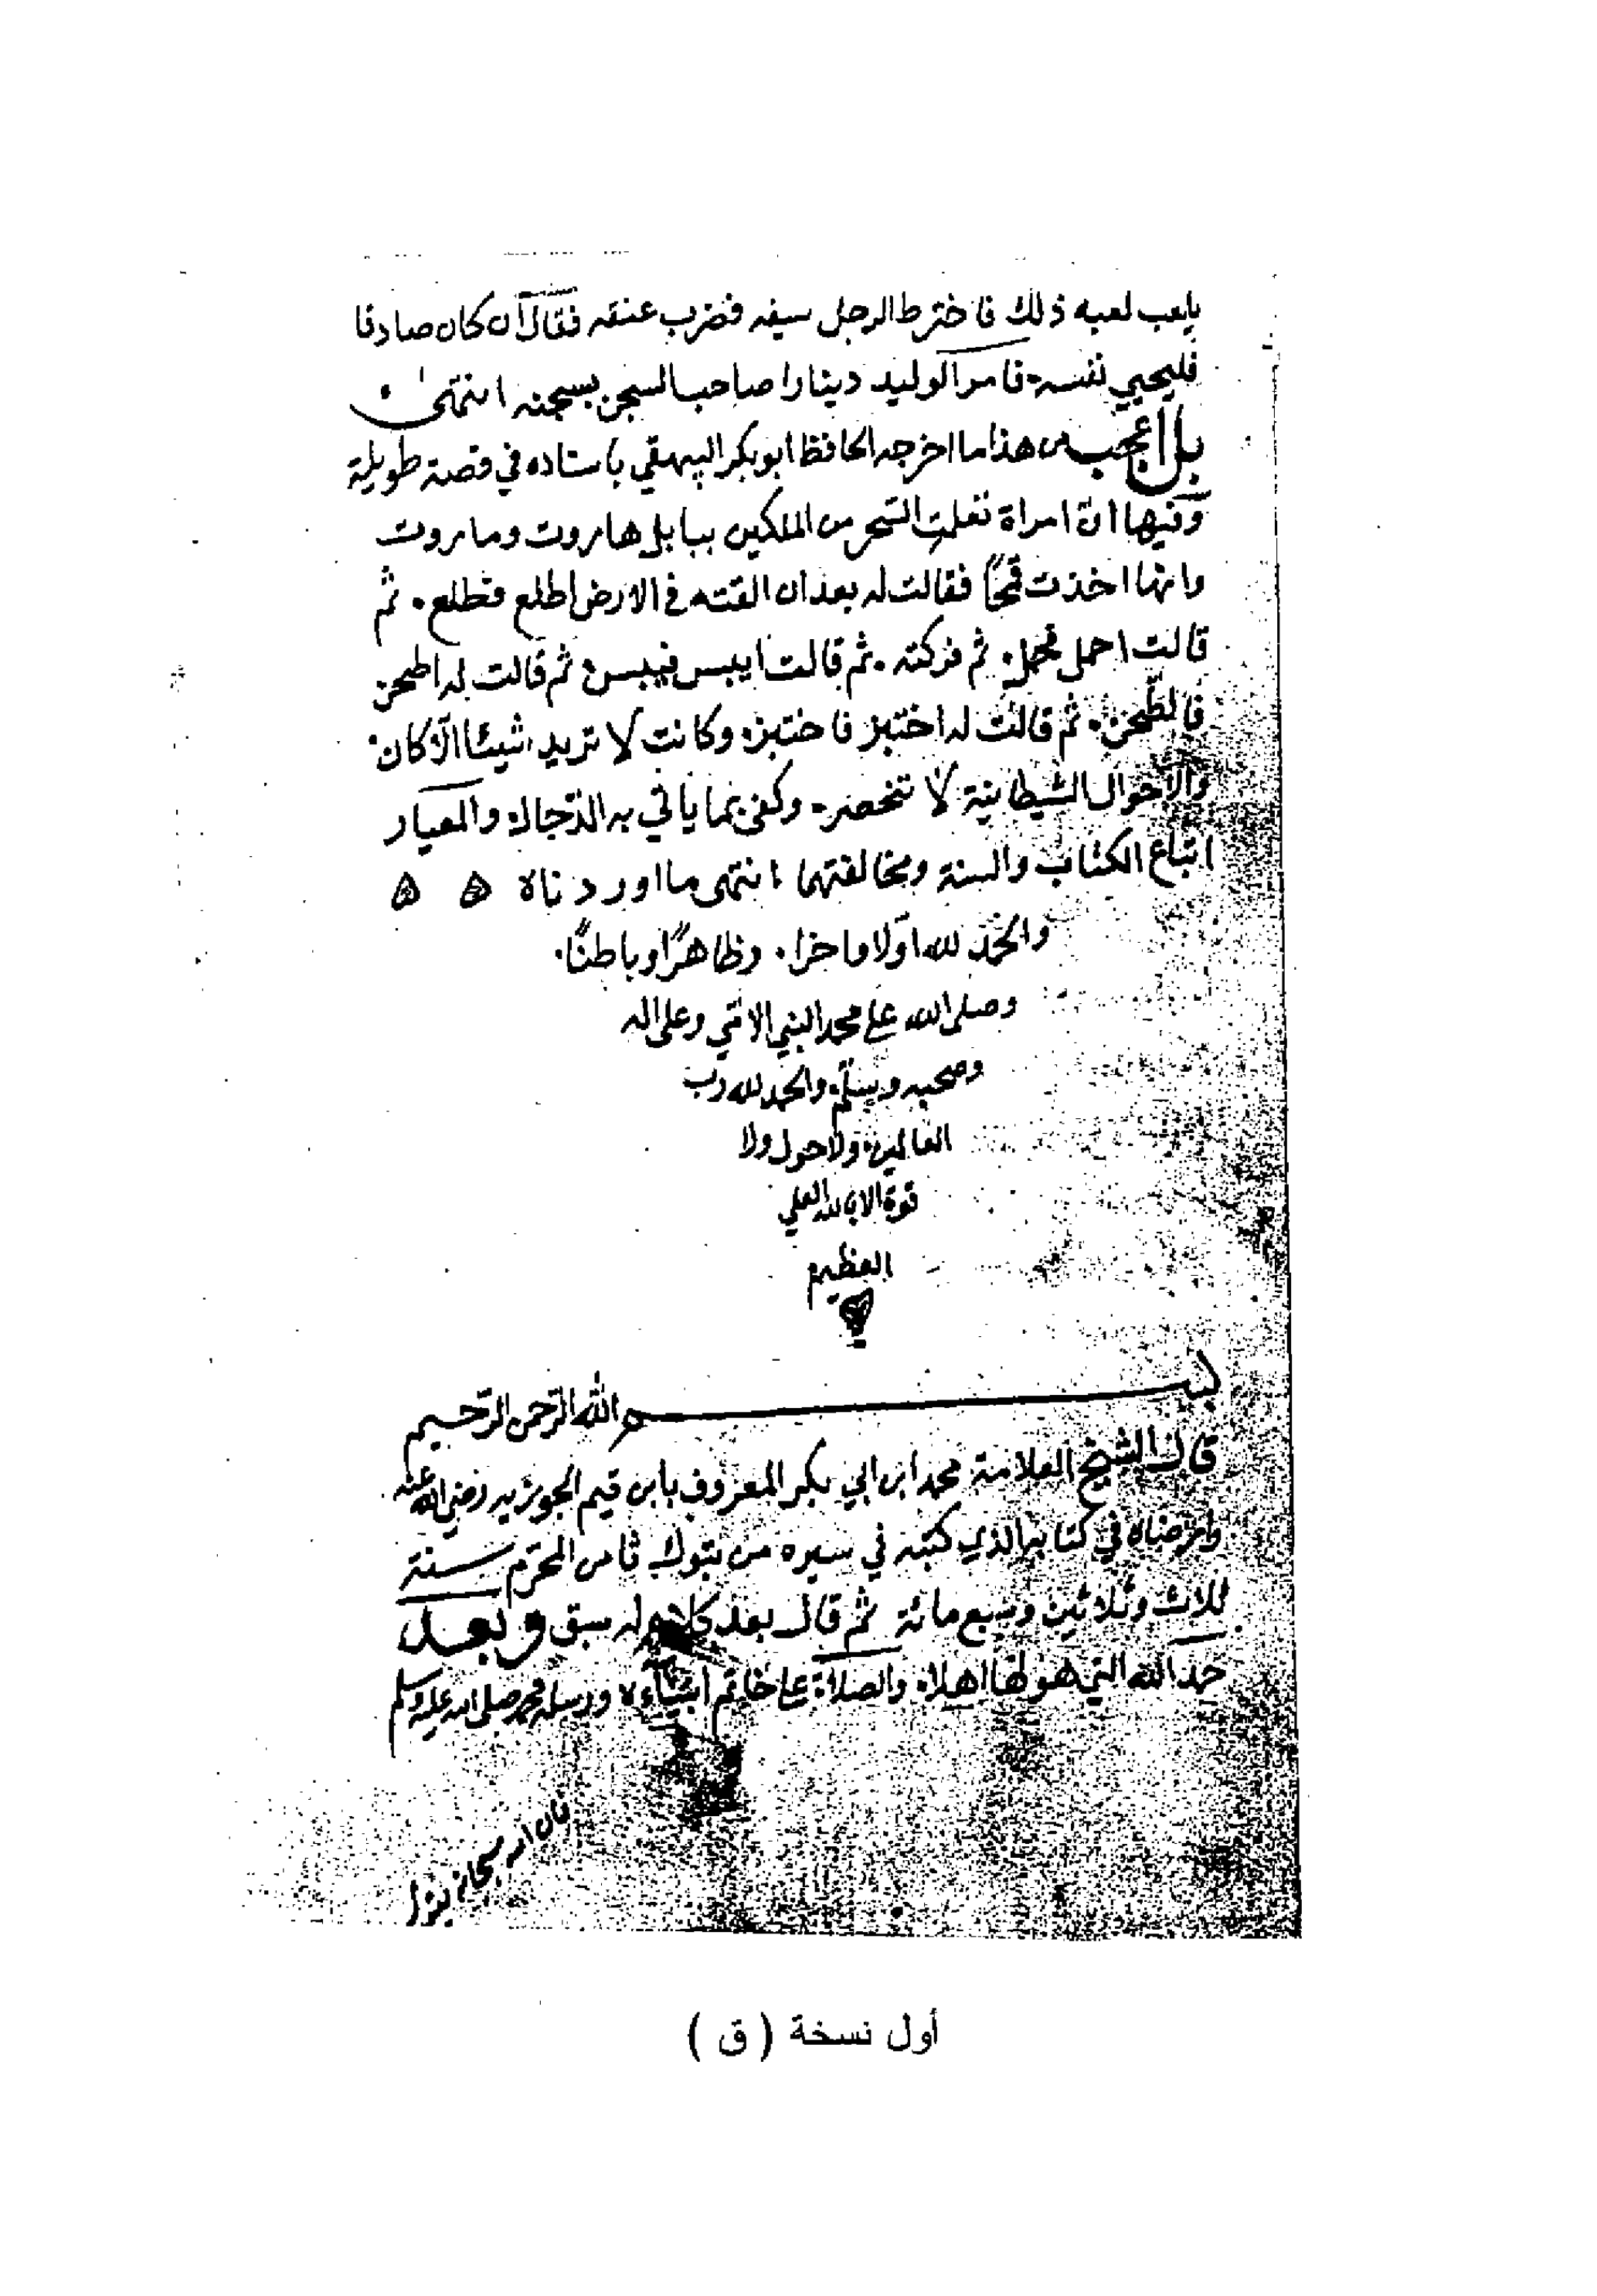 يلعب لعبه ذلك فاخترط الرجل سيفه فضرب عنقه فقال ان كان صادقا
فليحيي نفسه. فامر الوليد دينارا صاحب السجن بسجنه انتهى
بل اعجب من هذا ما اخرجه الحافظ ابو بكر البيهقي باسناده في قصة طويلة
وفيها ان امراة تعلمت السحر من الملكين ببابل هاروت وماروت
وانها اخذت قمحًا فقالت له بعد ان القته في الارض اطلع فطلع. ثم
قالت احمل فحمل. ثم فركته. ثم قالت ايبس فيبس ثم قالت له اطحن
فالطحن. ثم قالت له اختبز فاختبز. وكانت لا تريد شيئا الا كان.
والاحوال الشيطانية لا تنحصر. وكفى بما ياتي به الدجال. والمعيار
اتباع الكتاب والسنة ومخالفتهما انتهى ما اوردناه ۵ ۵
والحمد لله اولا واخرا. وظاهرًا وباطنًا.
وصلى الله على محمد النبي الامي وعلى اله
وصحبه وسلم. والحمد لله رب
العالمين. ولا حول ولا
قوة الا بالله العلي
العظيم
بسم الله الرحمن الرحيم
قال الشيخ العلامة محمد ابن ابي بكر المعروف بابن قيم الجوزيه رضي الله عنه
وارضاه في كتابه الذي كتبه في سيره من تبوك ثامن المحرم سنة
ثلاث وثلاثين وسبع مائة ثم قال بعد كلام له سبق وبعد
حمد الله التي هو لها اهلا. والصلاة على خاتم انبياءه ورسله محمد صلى الله عليه وسلم
فان الله سبحانه يقول
أول نسخة ( ق )